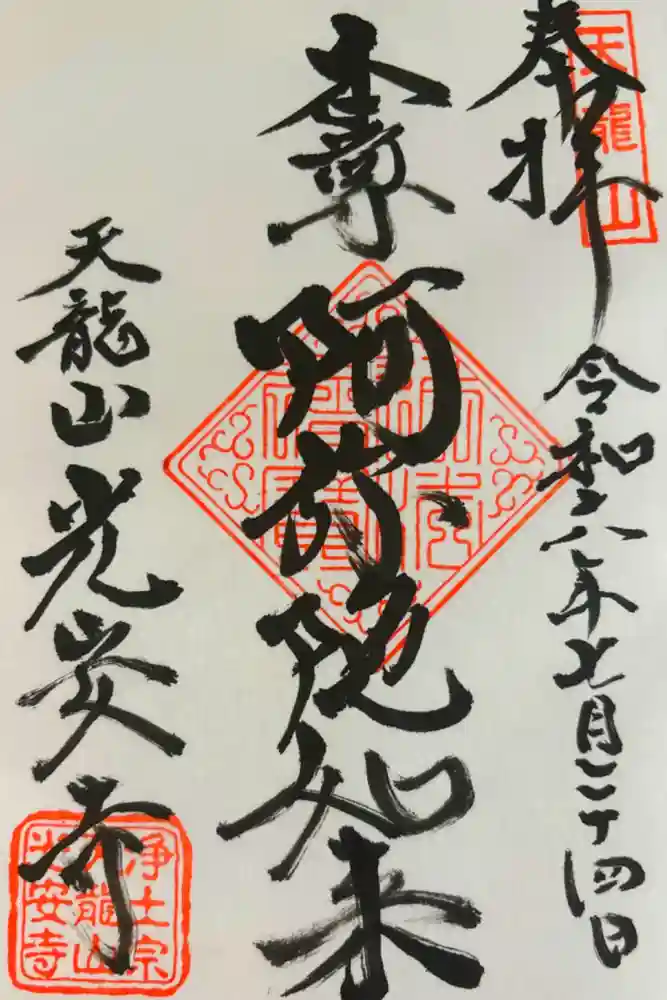 奉拝
天龍山
令和六年七月二十四日
本尊
阿弥陀如来
天龍山光安寺
浄土宗
天龍山
光安寺